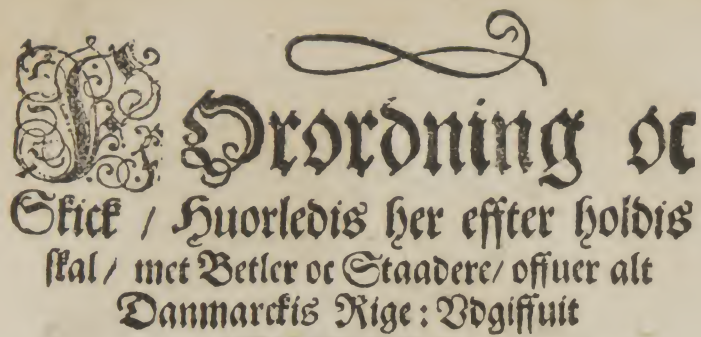 FOrordning oc
Skick / Huorledis her effter holdis
skal / met Betler oc Staadere / offuer alt
Danmarckis Rige : Vdgiffuit